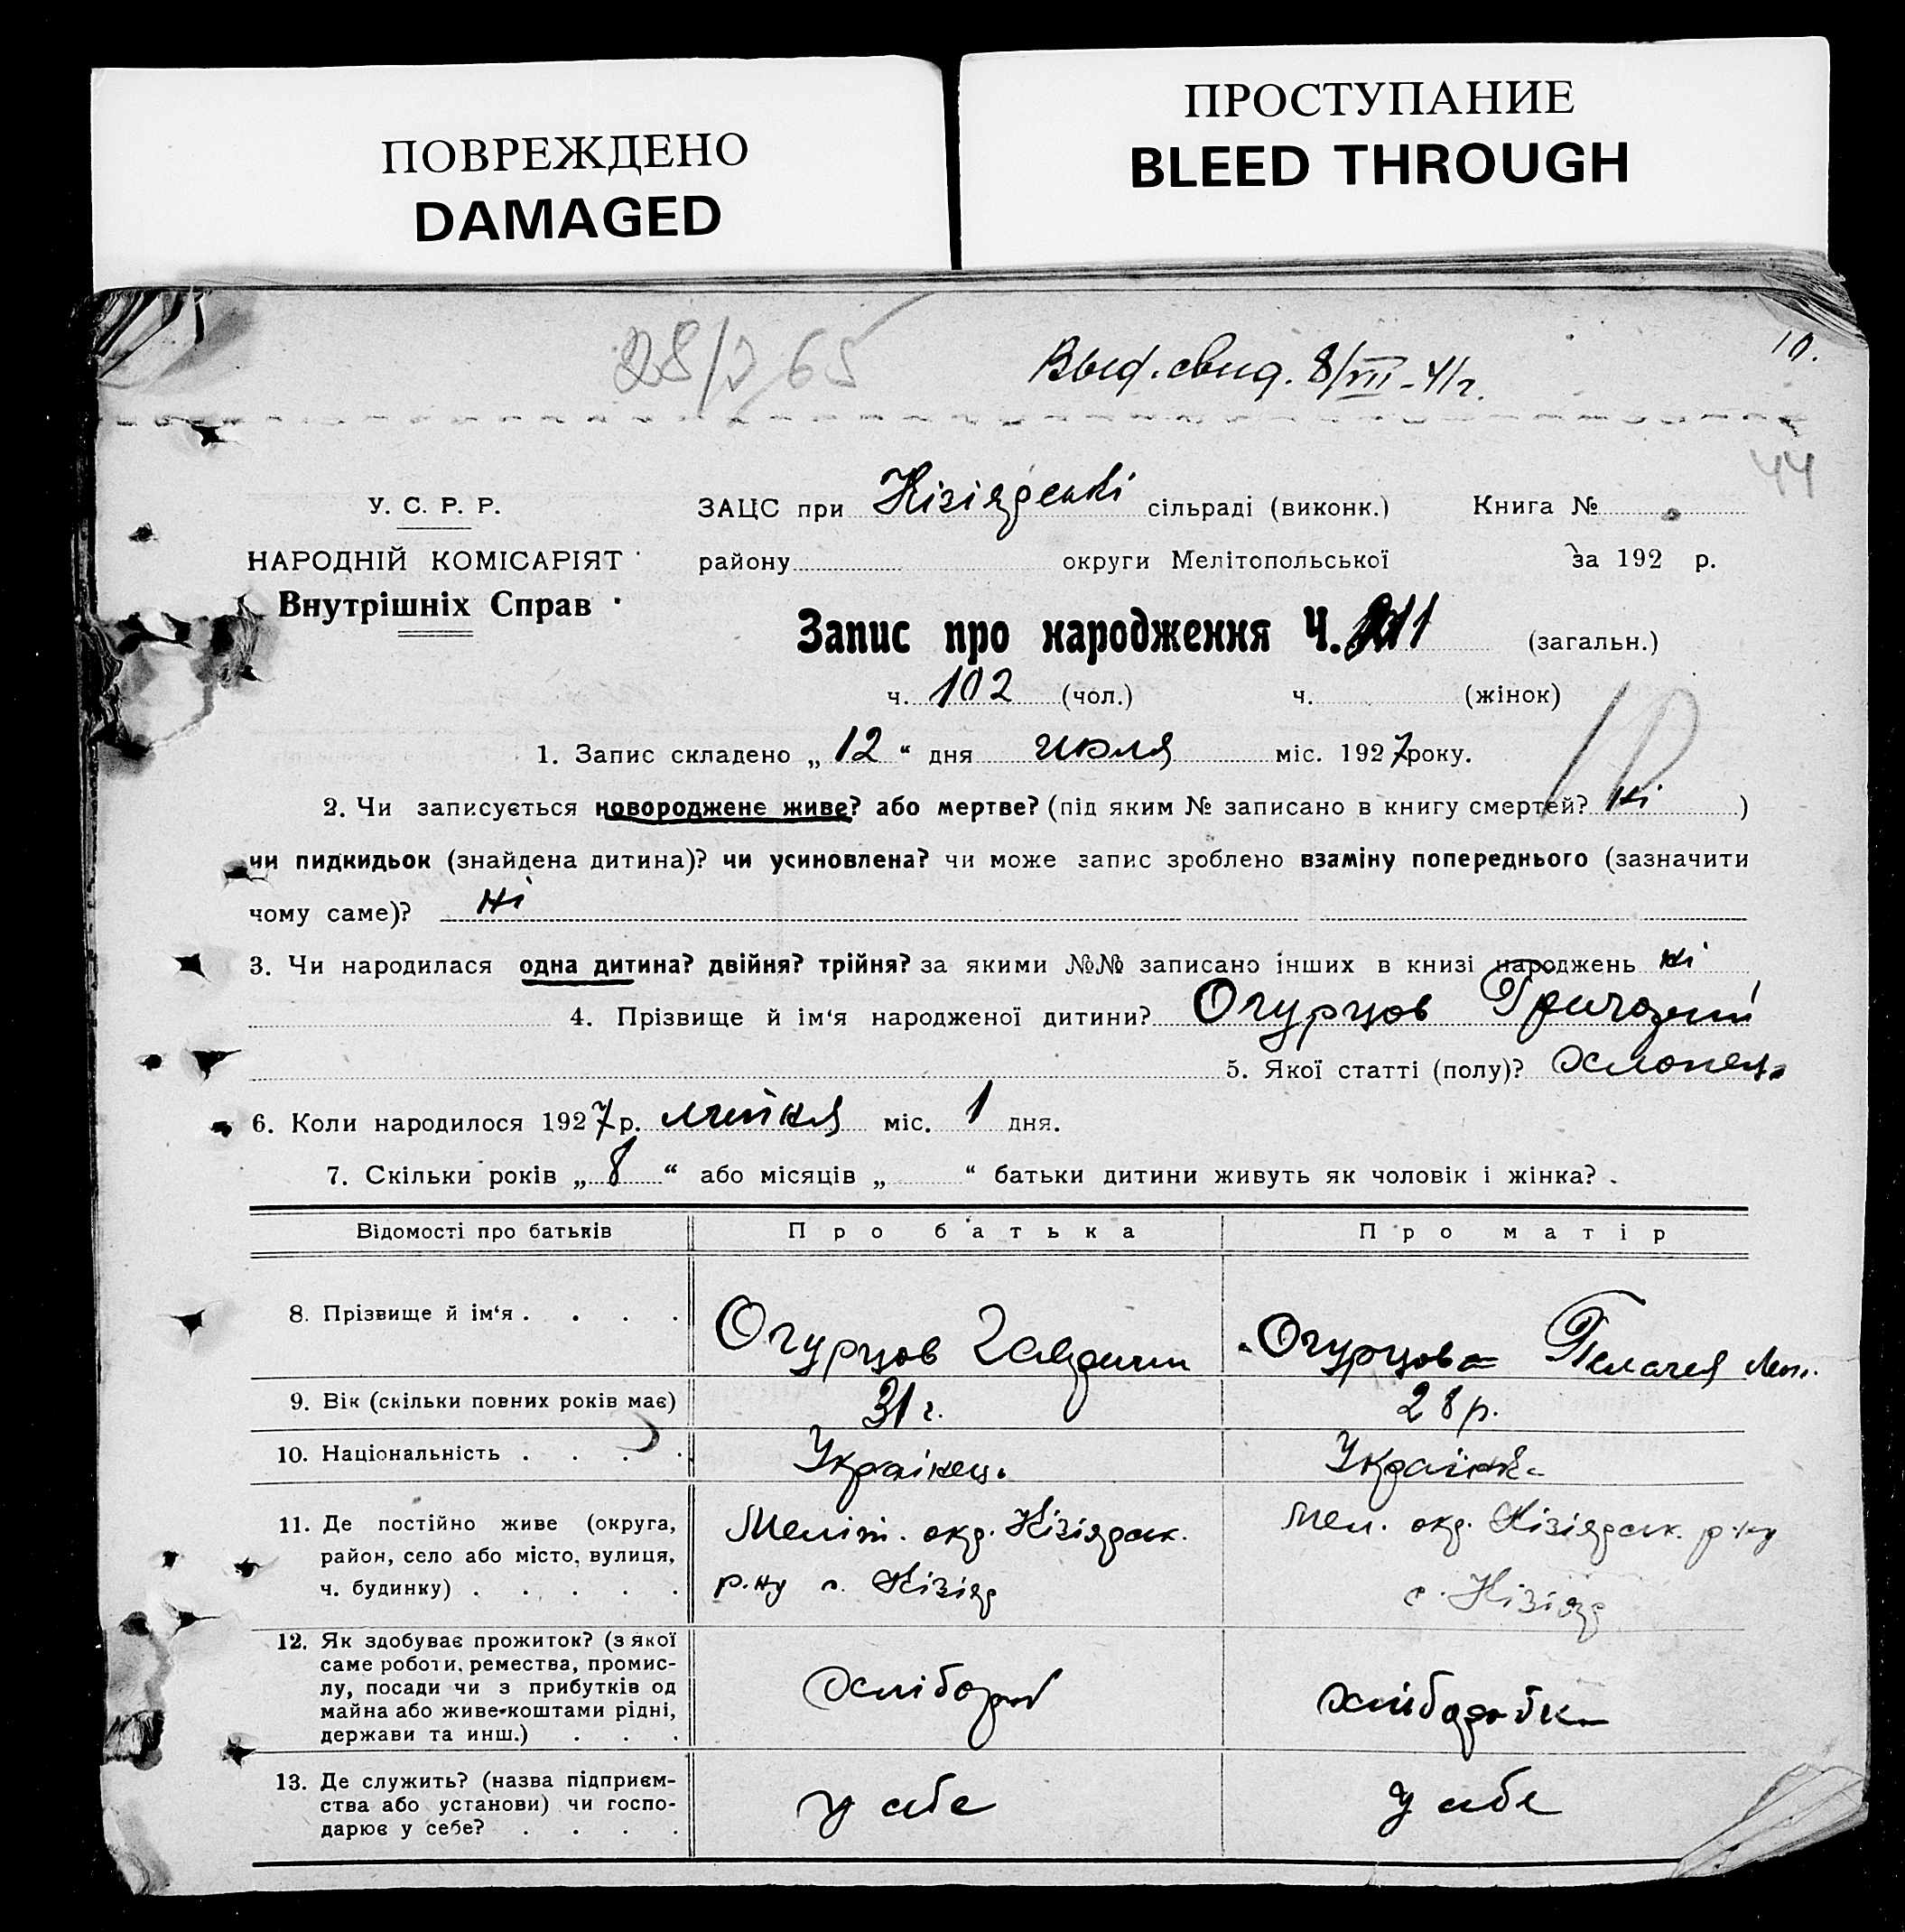 ПОВРЕЖДЕНО
DAMAGED
ПРОСТУПАНИЕ
BLEED THROUGH
10.
28/ 65
Выд. свид. 8/VII-41г.
44
У. С. Р. Р.
НАРОДНІЙ КОМІСАРІЯТ
Внутрішніх Справ
ЗАЦС при Кізіярській сільраді (виконк.) Книга №
району округи Мелітопольської за 192 р.
Запис про народження Ч. 211 (загальн.)
ч. 102 (чол.) ч. (жінок)
1. Запис складено „ 12 “ дня июля міс. 1927 року.
2. Чи записується новороджене живе? або мертве? (під яким № записано в книгу смертей? ні )
чи пидкидьок (знайдена дитина)? чи усиновлена? чи може запис зроблено взаміну попереднього (зазначити
чому саме)? ні
3. Чи народилася одна дитина? двійня? трійня? за якими №№ записано інших в книзі народжень ні
4. Прізвище й ім‘я народженої дитини? Огурцов
5. Якої статті (полу)? хлопець
6. Коли народилося 1927 р. липня міс. 1 дня.
7. Скільки років „ 8 “ або місяців „ “ батьки дитини живуть як чоловік і жінка?
Відомості про батьків Про батька Про матір
8. Прізвище й ім‘я . . . . Огурцов Огурцова Пелагея
9. Вік (скільки повних років має) 31 г. 28 р.
10. Національність . . . . Українець Українка
11. Де постійно живе (округа,
район, село або місто, вулиця,
ч. будинку) . . . . .
Меліт. окр. Кізіярськ.
р-ну с. Кізіяр
Мел. окр. Кізіярськ. р-ну
с. Кізіяр
12. Як здобуває прожиток? (з якої
саме роботи, ремества, промис-
лу, посади чи з прибутків од
майна або живе коштами рідні,
держави та инш.) . . .
хлібороб
хліборобка
13. Де служить? (назва підприєм-
ства або установи) чи госпо-
дарює у себе? . . . .
у себе
у себе